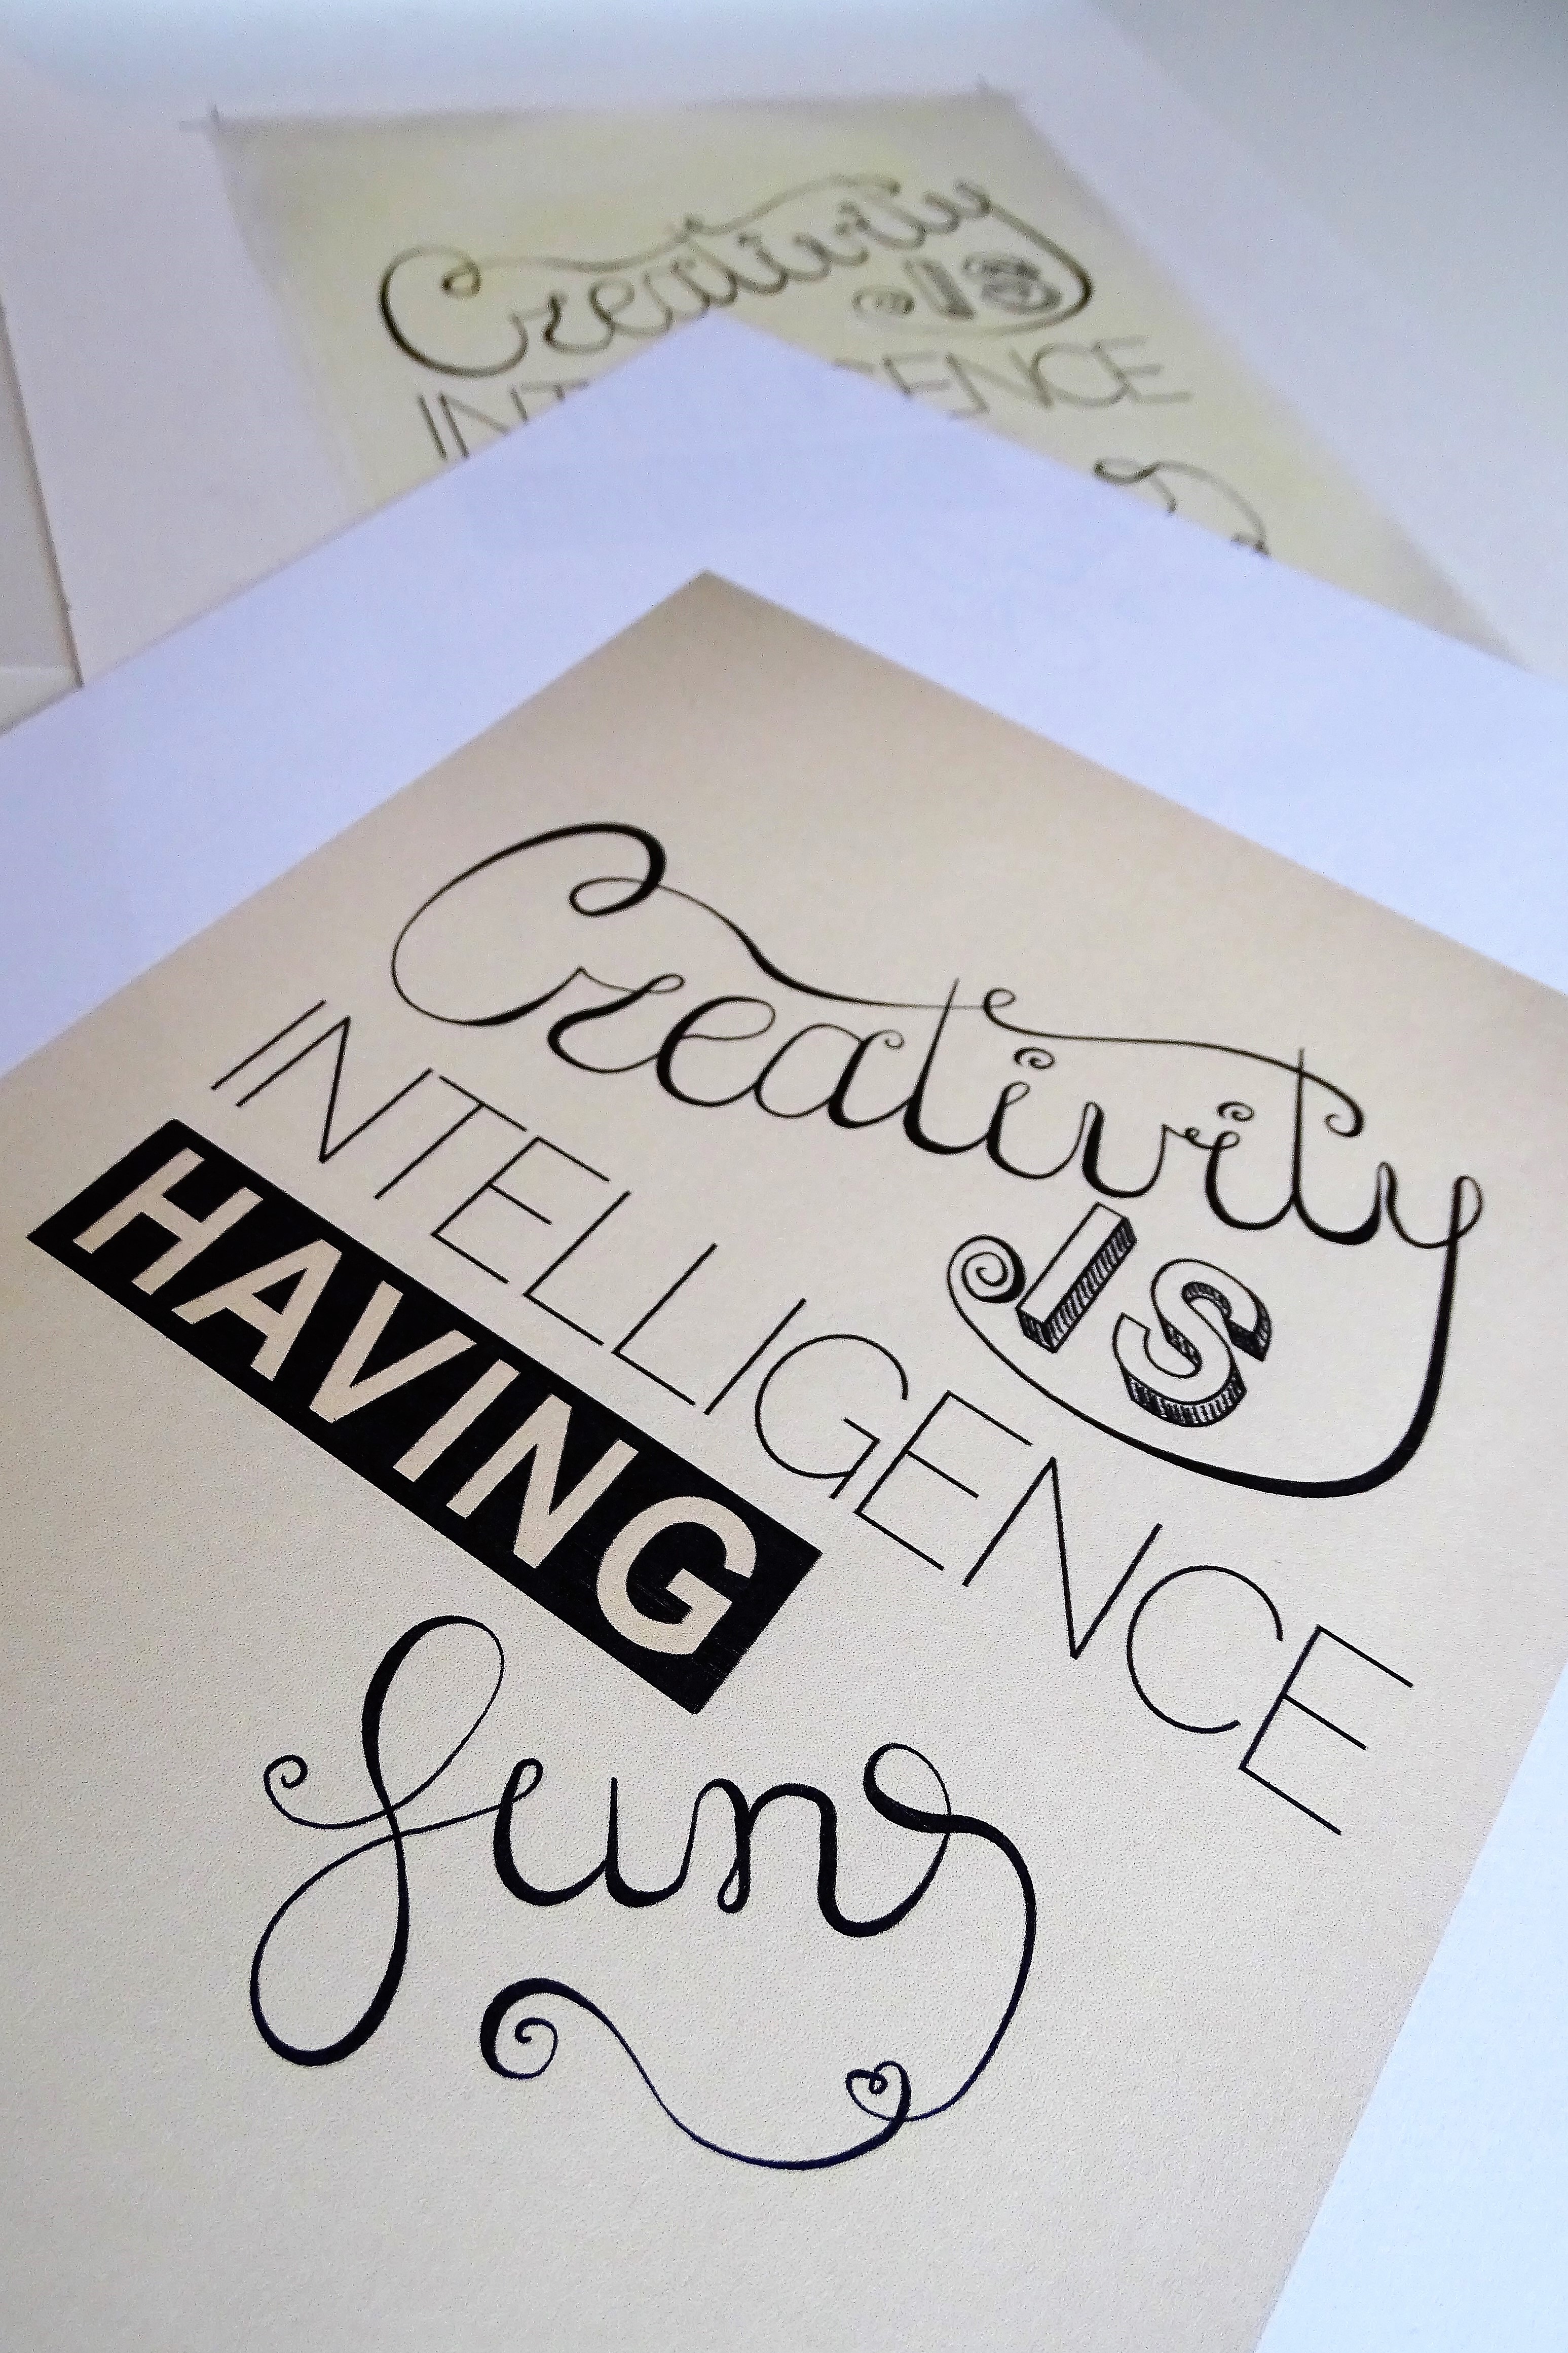 Creativity
IS
INTELLIGENCE
Creativity
IS
INTELLIGENCE
HAVING
fun